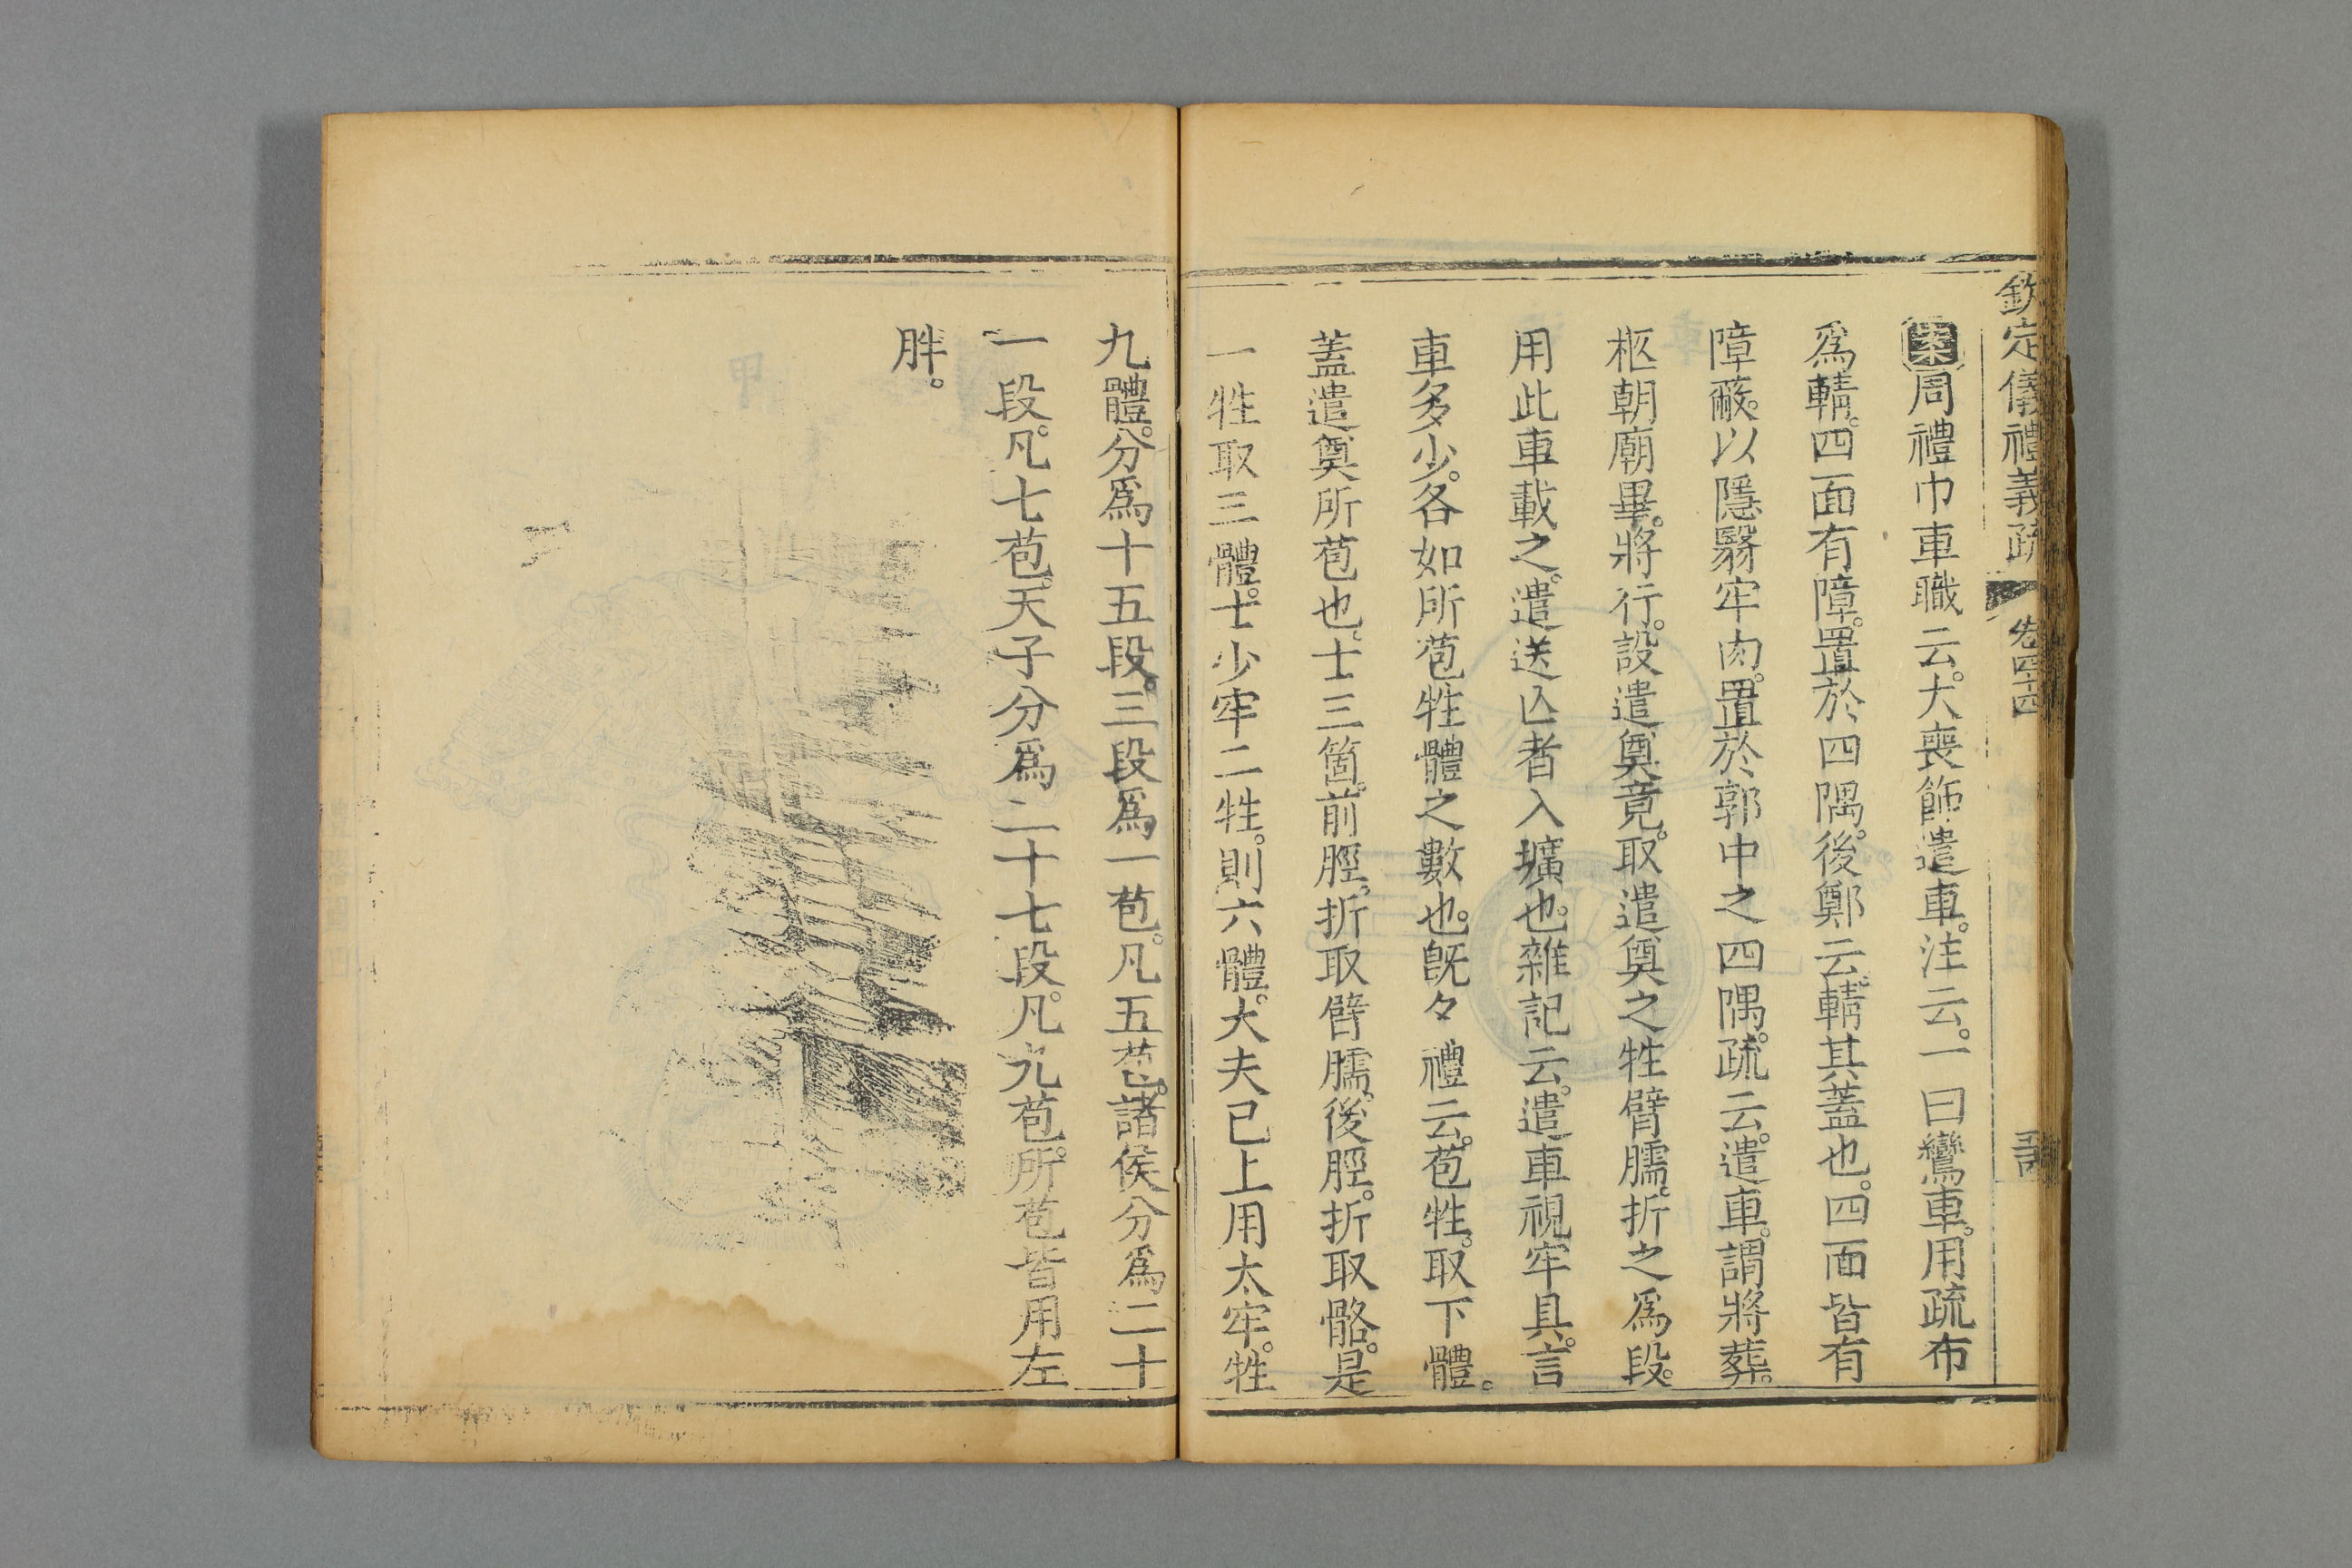 欽定儀禮義疏 卷四十四
案周禮巾車職云。大喪飾遣車。注云。一曰鸞車。用疏布
爲輤。四面有障。置於四隅。後鄭云。輤其蓋也。四面皆有
障蔽。以隱翳牢肉。置於郭中之四隅。疏云。遣車。謂將葬。
柩朝廟畢。將行。設遣奠竟。取遣奠之牲臂臑。折之爲段。
用此車載之。遣送亾者入壙也。雜記云。遣車視牢具。言
車多少。各如所苞牲體之數也。旣夕禮云。苞牲。取下體。
蓋遣奠所苞也。士三箇。前脛。折取臂臑。後脛。折取骼。是
一牲取三體。士少牢二牲。則六體。大夫已上用太牢。牲
九體。分爲十五段。三段爲一苞。凡五苞。諸侯分爲二十
一段。凡七苞。天子分爲二十七段。凡九苞。所苞皆用左
胖。